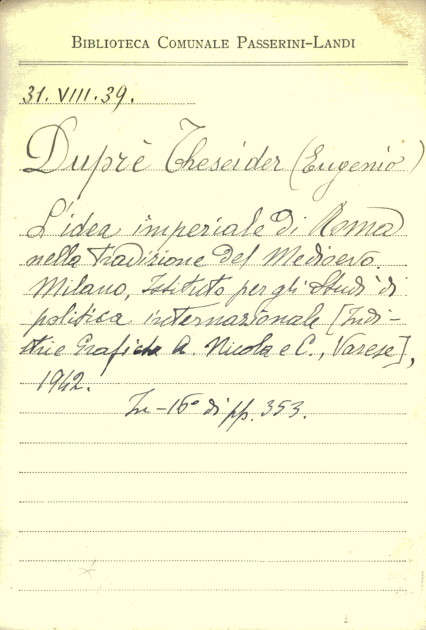 BIBLIOTECA COMUNALE PASSERINI-LANDI
31. VIII. 39.
Duprè Theseider (Eugenio)
L'idea imperiale di Roma
nella tradizione del Medioevo.
Milano, Istituto per gli Studi di
politica internazionale [Indu-
strie Grafiche A. Nicola e C., Varese],
1942.
In-16° di pp. 353.